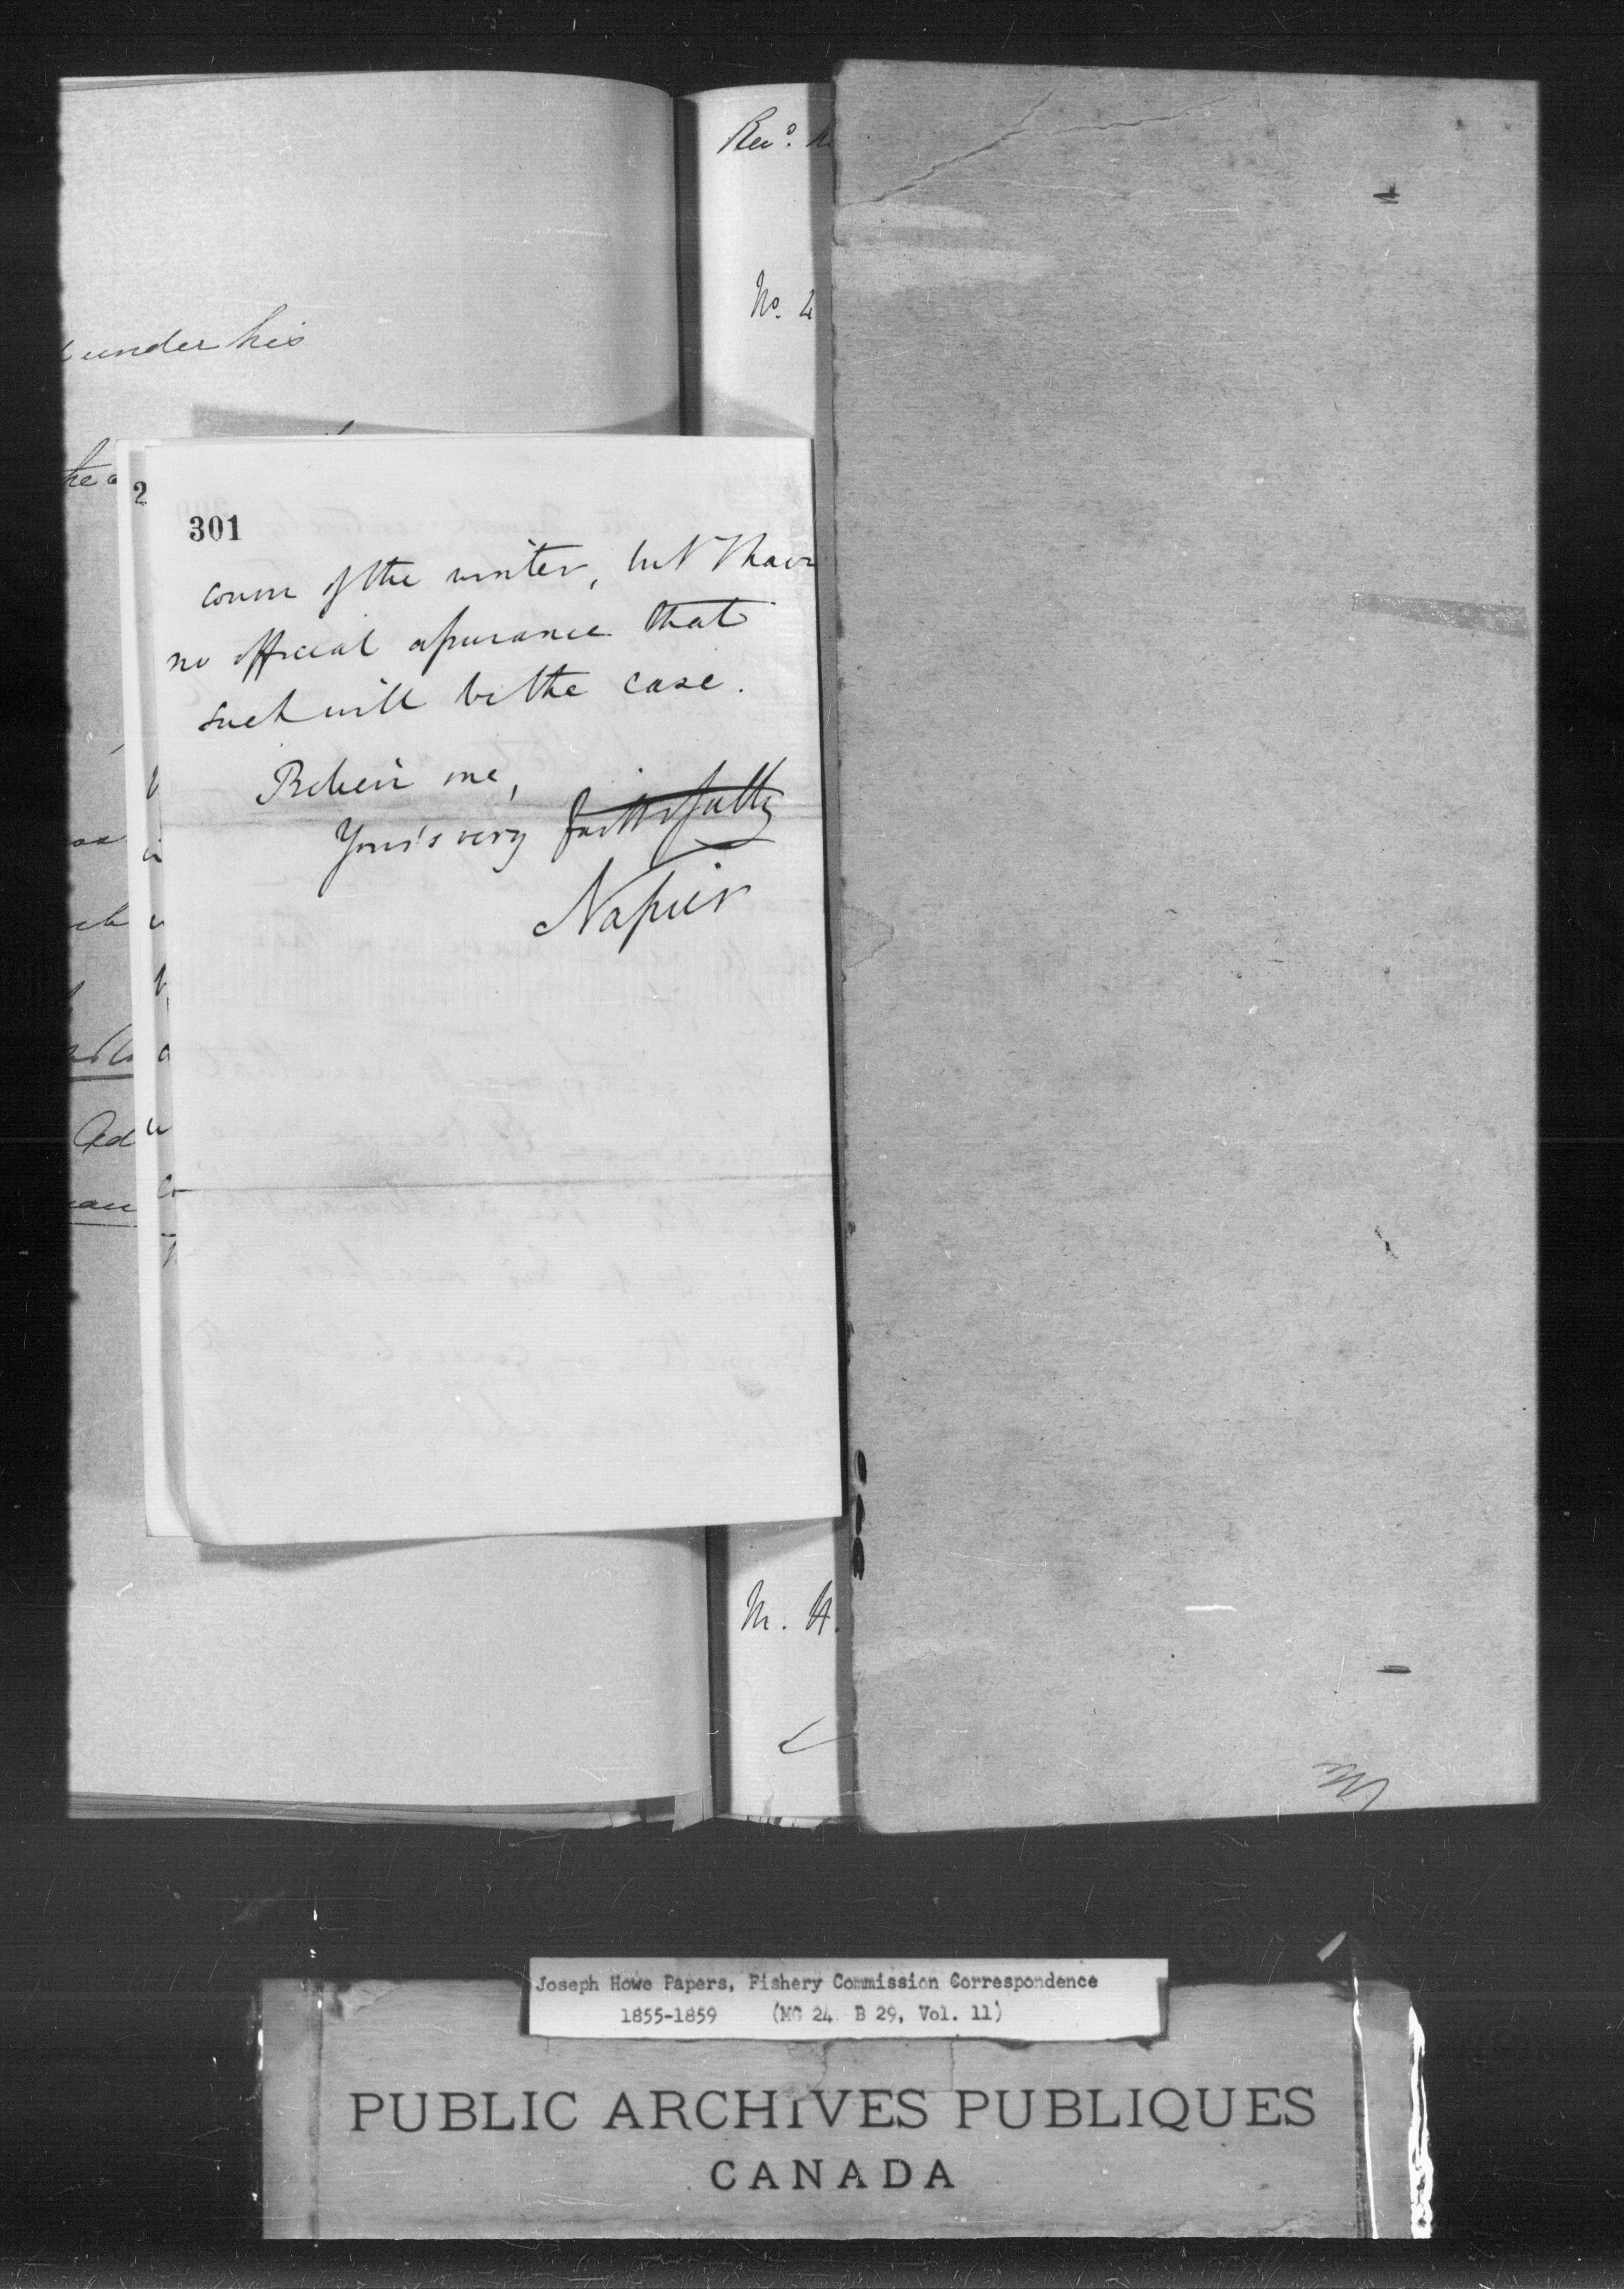 under his
Rec^d.
No. 4
the
2
301
course of the winter, but I have
no official assurance that
such will be the case.
Believe me,
Your's very faithfully
Napier
Ad
M. H.
Joseph Howe Papers, Fishery Commission Correspondence
1855-1859 (MG 24 B 29, Vol. 11)
PUBLIC ARCHIVES PUBLIQUES
CANADA